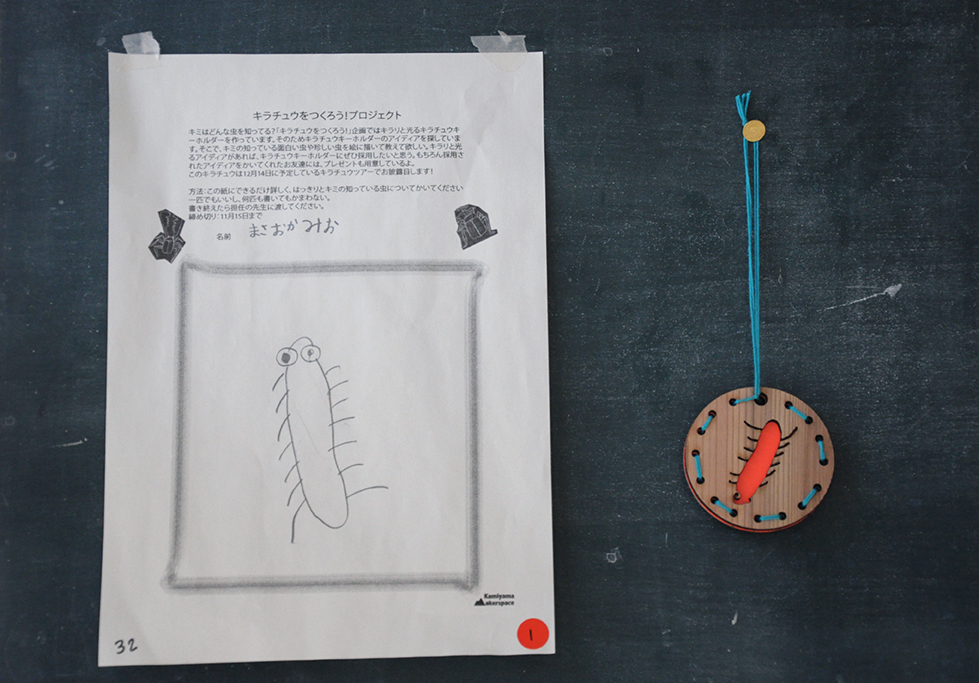 キラチュウをつくろう!プロジェクト
キミはどんな虫を知ってる?「キラチュウをつくろう!」企画ではキラリと光るキラチュウキ
ーホルダーを作っています。そのためキラチュウキーホルダーのアイディアを探していま
す。そこで、キミの知っている面白い虫や珍しい虫を絵に描いて教えて欲しい。キラリと光
るアイディアがあれば、キラチュウキーホルダーにぜひ採用したいと思う。もちろん採用さ
れたアイディアをかいてくれたお友達には、プレゼントも用意しているよ。
このキラチュウは12月14日に予定しているキラチュウツアーでお披露目します!
方法:この紙にできるだけ詳しく、はっきりとキミの知っている虫についてかいてください
一匹でもいいし、何匹も書いてもかまわない。
書き終えたら担任の先生に渡してください。
締め切り:11月15日まで
名前 まさおかみお
Kamiyama
Makerspace
32
1